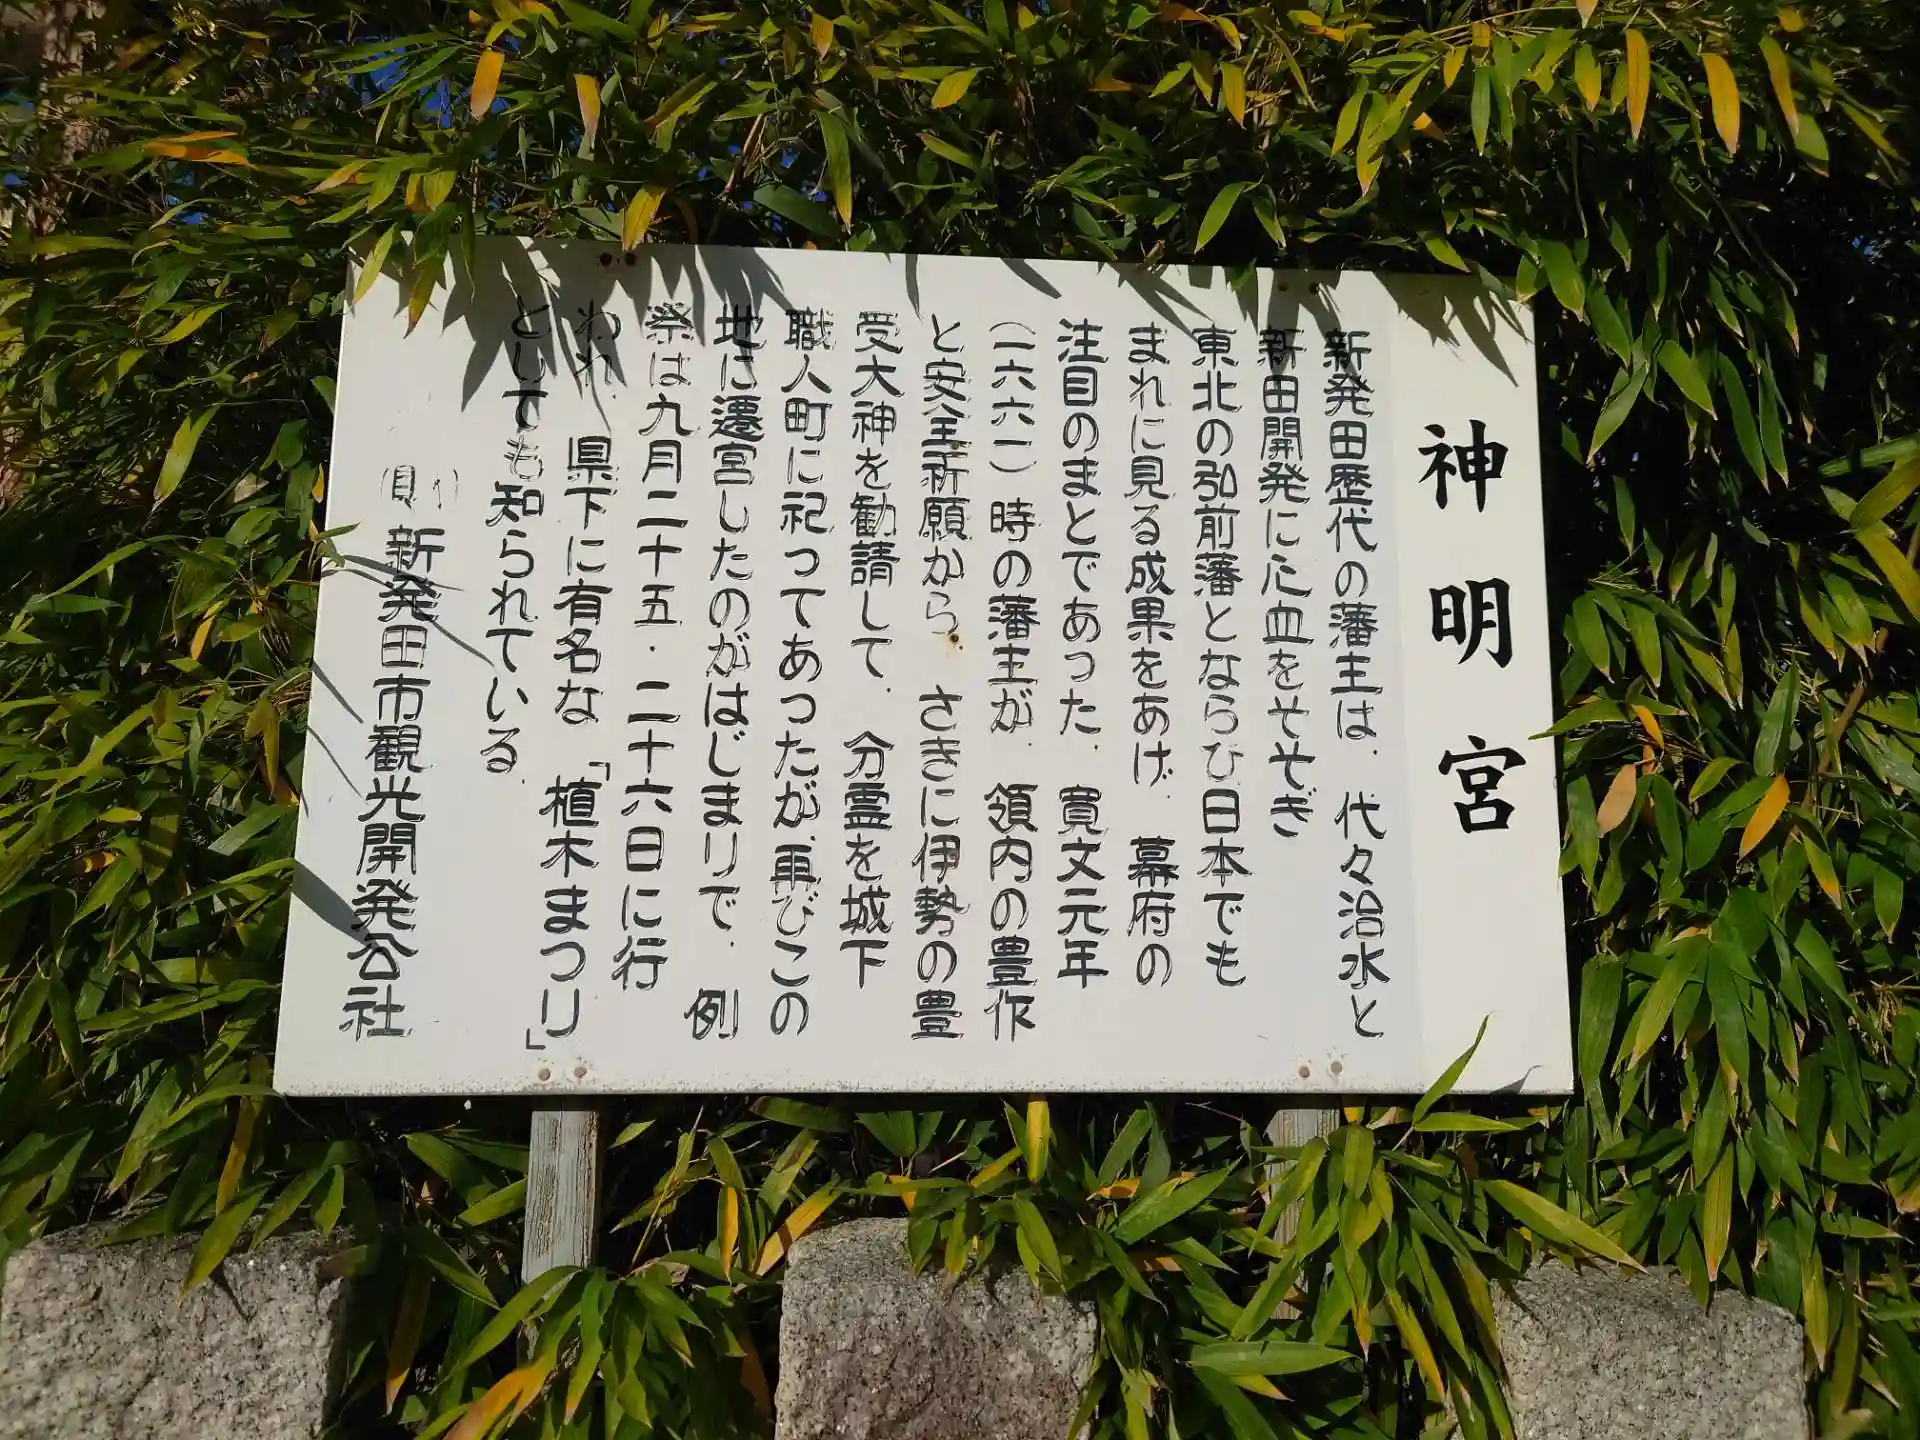 神明宮
新発田歴代の藩主は、代々治水と
新田開発に心血をそそぎ
東北の弘前藩とならび日本でも
まれに見る成果をあげ、幕府の
注目のまとであった。寛文元年
(一六六一)時の藩主が、領内の豊作
と安全祈願から、さきに伊勢の豊
受大神を勧請して、分霊を城下
職人町に祀ってあったが、再びこの
地に遷宮したのがはじまりで、例
祭は九月二十五・二十六日に行
われ、県下に有名な「植木まつり」
としても知られている。
(財)新発田市観光開発公社